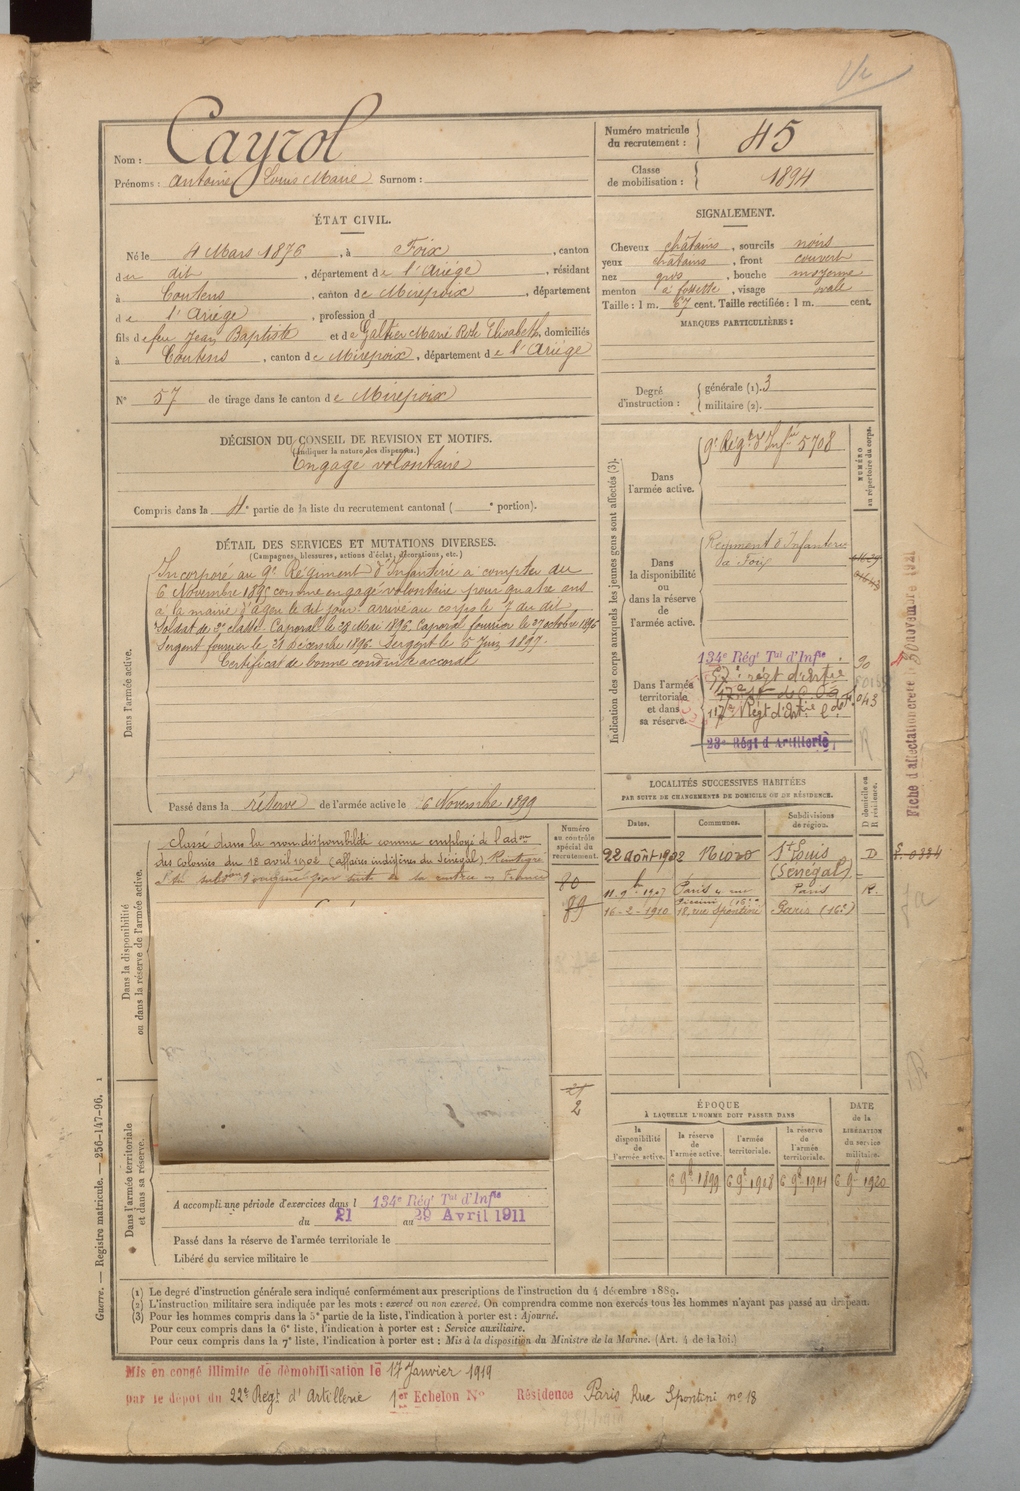 Nom : Cayrol
Prénoms : Antoine Louis Marie Surnom :
Numéro matricule du recrutement : 45
Classe de mobilisation : 1894
ÉTAT CIVIL.
Né le 4 Mars 1876, à Foix, canton
du dit, département de l'Ariège, résidant
à Coutens, canton de Mirepoix, département
de l'Ariège, profession d
fils de feu Jean Baptiste et de Galtier Marie Rose Elisabeth, domiciliés
à Coutens, canton de Mirepoix, département de l'Ariège
N° 57 de tirage dans le canton de Mirepoix
SIGNALEMENT.
Cheveux châtains, sourcils noirs
yeux châtains, front couvert
nez gros, bouche moyenne
menton à fossette, visage ovale
Taille : 1 m. 67 cent. Taille rectifiée : 1 m. cent.
MARQUES PARTICULIÈRES :
Degré d'instruction : générale (1). 3
militaire (2).
DÉCISION DU CONSEIL DE REVISION ET MOTIFS.
(Indiquer la nature des dispenses.)
Engagé volontaire
Compris dans la 4e partie de la liste du recrutement cantonal ( e portion).
DÉTAIL DES SERVICES ET MUTATIONS DIVERSES.
(Campagnes, blessures, actions d'éclat, décorations, etc.)
Dans l'armée active.
Incorporé au 9e Régiment d'Infanterie à compter du
6 Novembre 1895 comme engagé volontaire pour quatre ans
à la mairie d'Agen le dit jour arrivé au corps le 7 du dit
Soldat de 2e classe. Caporal le 28 Mai 1896. Caporal fourrier le 27 octobre 1896
Sergent fourrier le 21 Décembre 1896. Sergent le 5 Juin 1897.
Certificat de bonne conduite accordé
Passé dans la réserve de l'armée active le 6 Novembre 1899
Indication des corps auxquels les jeunes gens sont affectés (3).
NUMÉRO au répertoire du corps.
Dans l'armée active.
9e Régt d'Infie 5708
Dans la disponibilité ou dans la réserve de l'armée active.
Régiment d'Infanterie
de Foix
Dans l'armée territoriale et dans sa réserve.
134e Régt Tal d'Infie 90
117e Régt d'Art. 043
23e Régt d'Artillerie
Fiche d'affectation créée le 30 novembre 1921
Dans la disponibilité ou dans la réserve de l'armée active.
Classé dans la non disponibilité comme employé de l'adon
des colonies du 18 avril 1902 (affaires indigènes du Sénégal). Réintégré
Numéro au contrôle spécial du recrutement.
80
89
2
LOCALITÉS SUCCESSIVES HABITÉES
PAR SUITE DE CHANGEMENTS DE DOMICILE OU DE RÉSIDENCE.
Dates. Communes. Subdivisions de région. D domicile ou R résidence.
22 août 1902 Nioro St Louis (Sénégal) D
11-9-1907 Paris 4 rue Paris R.
16-2-1910 18, rue Spontini Paris (16e)
ÉPOQUE
À LAQUELLE L'HOMME DOIT PASSER DANS
la disponibilité de l'armée active.
la réserve de l'armée active.
l'armée territoriale.
la réserve de l'armée territoriale.
DATE de la LIBÉRATION du service militaire.
6 9bre 1899 6 9bre 1908 6 9bre 1914 6 9bre 1920
Dans l'armée territoriale et dans sa réserve.
A accompli une période d'exercices dans l 134e Régt Tal d'Infie
du 21 au 29 Avril 1911
Passé dans la réserve de l'armée territoriale le
Libéré du service militaire le
Guerre. — Registre matricule. — 256-147-96. 1
(1) Le degré d'instruction générale sera indiqué conformément aux prescriptions de l'instruction du 4 décembre 1889.
(2) L'instruction militaire sera indiquée par les mots : exercé ou non exercé. On comprendra comme non exercés tous les hommes n'ayant pas passé au drapeau.
(3) Pour les hommes compris dans la 5e partie de la liste, l'indication à porter est : Ajourné.
Pour ceux compris dans la 6e liste, l'indication à porter est : Service auxiliaire.
Pour ceux compris dans la 7e liste, l'indication à porter est : Mis à la disposition du Ministre de la Marine. (Art. 4 de la loi.)
Mis en congé illimité de démobilisation le 17 Janvier 1919
par le dépôt du 22e Régt d'Artillerie 1er Echelon N° Résidence Paris Rue Spontini n° 18